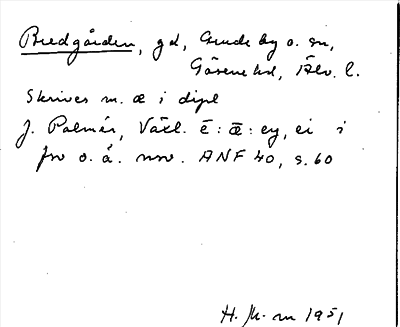 Bredgården, gd, Grude by o. sn,
Gäsene hd, Älvs. l.
Skrives m. æ i dipl
J. Palmér, Växl. ē : ǣ : ey, ei i
fsv o. å. nsv. ANF 40, s. 60
H. 1951